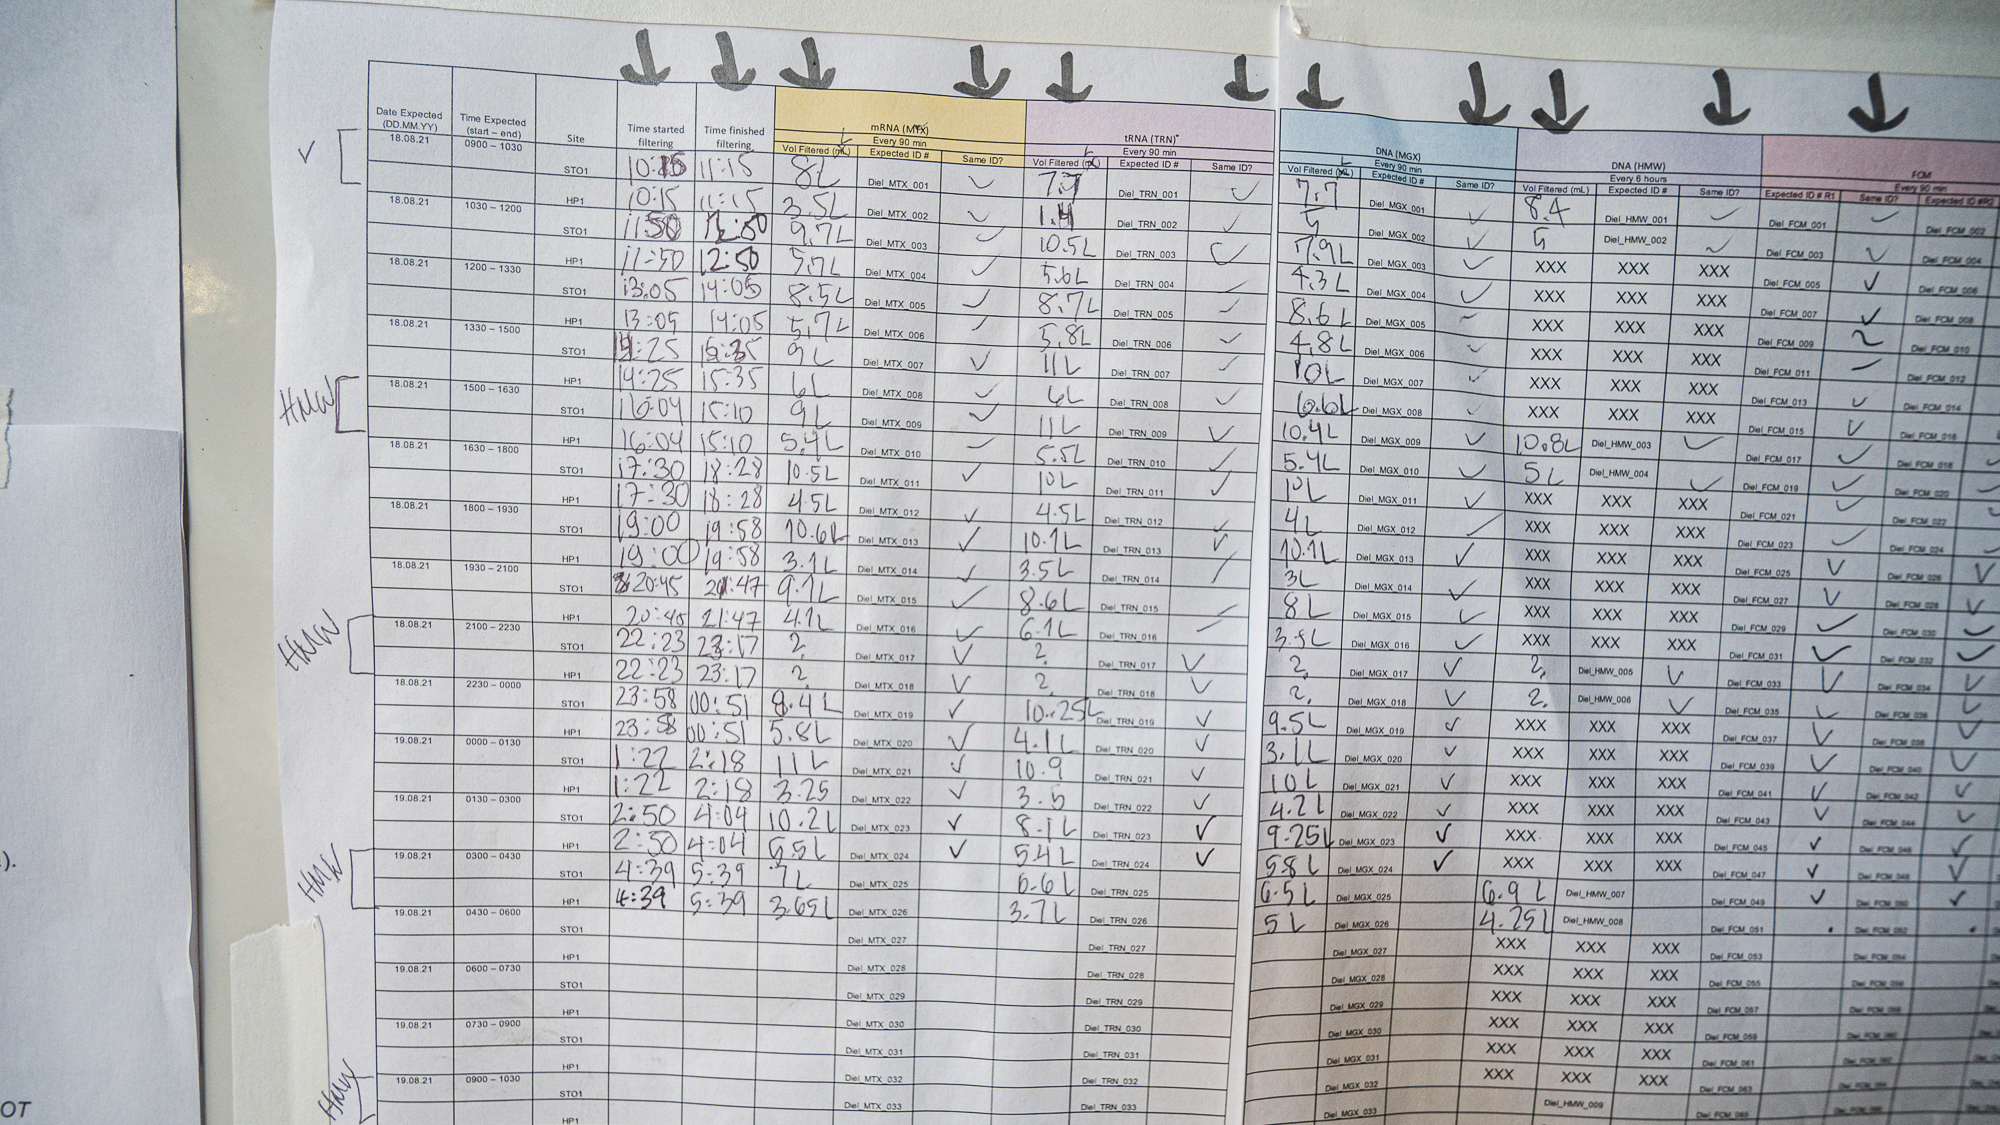 Date Expected (DD.MM.YY) Time Expected (start – end) Site Time started filtering Time finished filtering
mRNA (MTX) Every 90 min Vol Filtered Expected ID # Same ID?
tRNA (TRN) Every 90 min Vol Filtered Expected ID # Same ID?
DNA (MGX) Every 90 min Vol Filtered Expected ID # Same ID?
DNA (HMW) Every 6 hours Vol Filtered (mL) Expected ID # Same ID?
FCM Every 90 min Expected ID # R1 Same ID? Expected ID #R2
18.08.21 0900 – 1030 STO1 11:15 8L Diel_MTX_001 7.7 Diel_TRN_001 7.7 Diel_MGX_001 8.4 Diel_HMW_001 Diel_FCM_001 Diel_FCM_002
HP1 10:15 11:15 3.5L Diel_MTX_002 Diel_TRN_002 5 Diel_MGX_002 5 Diel_HMW_002 Diel_FCM_003 Diel_FCM_004
18.08.21 1030 – 1200 STO1 11:50 12:50 9.7L Diel_MTX_003 10.5L Diel_TRN_003 7.9L Diel_MGX_003 XXX XXX XXX Diel_FCM_005 Diel_FCM_006
HP1 11:50 12:50 5.7L Diel_MTX_004 5.6L Diel_TRN_004 4.3L Diel_MGX_004 XXX XXX XXX Diel_FCM_007 Diel_FCM_008
18.08.21 1200 – 1330 STO1 13:05 14:05 8.5L Diel_MTX_005 8.7L Diel_TRN_005 8.6L Diel_MGX_005 XXX XXX XXX Diel_FCM_009 Diel_FCM_010
HP1 13:05 14:05 5,7L Diel_MTX_006 5,8L Diel_TRN_006 4,8L Diel_MGX_006 XXX XXX XXX Diel_FCM_011 Diel_FCM_012
18.08.21 1330 – 1500 STO1 15:35 9L Diel_MTX_007 11L Diel_TRN_007 10L Diel_MGX_007 XXX XXX XXX Diel_FCM_013 Diel_FCM_014
HP1 14:25 15:35 6L Diel_MTX_008 6L Diel_TRN_008 6.6L Diel_MGX_008 XXX XXX XXX Diel_FCM_015 Diel_FCM_016
HMW 18.08.21 1500 – 1630 STO1 16:04 15:10 9L Diel_MTX_009 11L Diel_TRN_009 10.4L Diel_MGX_009 10.8L Diel_HMW_003 Diel_FCM_017 Diel_FCM_018
HP1 16:04 15:10 5.4L Diel_MTX_010 5.5L Diel_TRN_010 5.4L Diel_MGX_010 5L Diel_HMW_004 Diel_FCM_019 Diel_FCM_020
18.08.21 1630 – 1800 STO1 17:30 18:28 10.5L Diel_MTX_011 10L Diel_TRN_011 10L Diel_MGX_011 XXX XXX XXX Diel_FCM_021 Diel_FCM_022
HP1 17:30 18:28 4.5L Diel_MTX_012 4.5L Diel_TRN_012 4L Diel_MGX_012 XXX XXX XXX Diel_FCM_023 Diel_FCM_024
18.08.21 1800 – 1930 STO1 19:00 19:58 10.6L Diel_MTX_013 10.1L Diel_TRN_013 10.1L Diel_MGX_013 XXX XXX XXX Diel_FCM_025 Diel_FCM_026
HP1 19:00 19:58 3.1L Diel_MTX_014 3.5L Diel_TRN_014 3L Diel_MGX_014 XXX XXX XXX Diel_FCM_027 Diel_FCM_028
18.08.21 1930 – 2100 STO1 20:45 21:47 9.1L Diel_MTX_015 8.6L Diel_TRN_015 8L Diel_MGX_015 XXX XXX XXX Diel_FCM_029 Diel_FCM_030
HP1 20:45 21:47 4.1L Diel_MTX_016 6.1L Diel_TRN_016 3.5L Diel_MGX_016 XXX XXX XXX Diel_FCM_031 Diel_FCM_032
HMW 18.08.21 2100 – 2230 STO1 22:23 23:17 2, Diel_MTX_017 2, Diel_TRN_017 2, Diel_MGX_017 2, Diel_HMW_005 Diel_FCM_033 Diel_FCM_034
HP1 22:23 23:17 2, Diel_MTX_018 2, Diel_TRN_018 2, Diel_MGX_018 2, Diel_HMW_006 Diel_FCM_035 Diel_FCM_036
18.08.21 2230 – 0000 STO1 23:58 00:51 8.4L Diel_MTX_019 10.25L Diel_TRN_019 9.5L Diel_MGX_019 XXX XXX XXX Diel_FCM_037 Diel_FCM_038
HP1 23:58 00:51 5.8L Diel_MTX_020 4.1L Diel_TRN_020 3.1L Diel_MGX_020 XXX XXX XXX Diel_FCM_039 Diel_FCM_040
19.08.21 0000 – 0130 STO1 1:22 2:18 11L Diel_MTX_021 10.9 Diel_TRN_021 10L Diel_MGX_021 XXX XXX XXX Diel_FCM_041 Diel_FCM_042
HP1 1:22 2:18 3.25 Diel_MTX_022 3.5 Diel_TRN_022 4.2L Diel_MGX_022 XXX XXX XXX Diel_FCM_043 Diel_FCM_044
19.08.21 0130 – 0300 STO1 2:50 4:04 10.2L Diel_MTX_023 8.1L Diel_TRN_023 9.25L Diel_MGX_023 XXX XXX XXX Diel_FCM_045 Diel_FCM_046
HP1 2:50 4:04 5.5L Diel_MTX_024 5.4L Diel_TRN_024 5.8L Diel_MGX_024 XXX XXX XXX Diel_FCM_047 Diel_FCM_048
HMW 19.08.21 0300 – 0430 STO1 4:39 5:39 7L Diel_MTX_025 6.6L Diel_TRN_025 6.5L Diel_MGX_025 6.9L Diel_HMW_007 Diel_FCM_049 Diel_FCM_050
HP1 4:39 5:39 3.65L Diel_MTX_026 3.7L Diel_TRN_026 5L Diel_MGX_026 4.25L Diel_HMW_008 Diel_FCM_051 Diel_FCM_052
19.08.21 0430 – 0600 STO1 Diel_MTX_027 Diel_TRN_027 Diel_MGX_027 XXX XXX XXX Diel_FCM_053
HP1 Diel_MTX_028 Diel_TRN_028 Diel_MGX_028 XXX XXX XXX Diel_FCM_055
19.08.21 0600 – 0730 STO1 Diel_MTX_029 Diel_TRN_029 Diel_MGX_029 XXX XXX XXX Diel_FCM_057
HP1 Diel_MTX_030 Diel_TRN_030 Diel_MGX_030 XXX XXX XXX Diel_FCM_059
19.08.21 0730 – 0900 STO1 Diel_MTX_031 Diel_TRN_031 Diel_MGX_031 XXX XXX XXX Diel_FCM_061
HP1 Diel_MTX_032 Diel_TRN_032 Diel_MGX_032 XXX XXX XXX Diel_FCM_063
HMW 19.08.21 0900 – 1030 STO1 Diel_MTX_033 Diel_TRN_033 Diel_MGX_033 Diel_HMW_009 Diel_FCM_065
HP1
).
OT